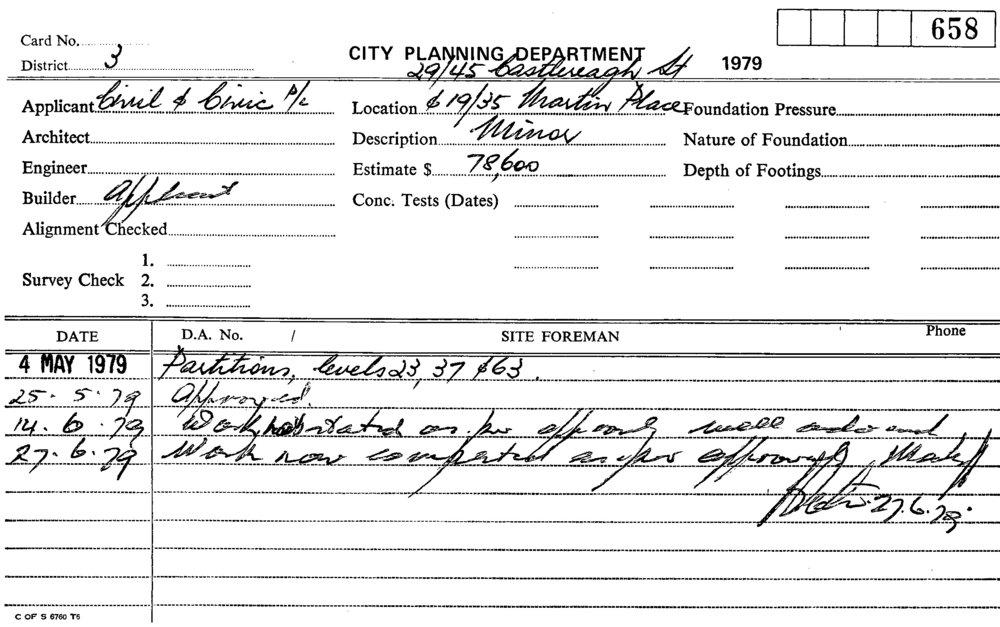 658
Card No.
District 3
CITY PLANNING DEPARTMENT 1979
29/45 Castlereagh St
Applicant Civil & Civic P/L
Location & 19/35 Martin Place
Foundation Pressure
Architect
Description Minor
Nature of Foundation
Engineer
Estimate $ 78,600
Depth of Footings
Builder Applicant
Conc. Tests (Dates)
Alignment Checked
Survey Check
1.
2.
3.
DATE D.A. No. / SITE FOREMAN Phone
4 MAY 1979 Partitions, levels 23, 37 & 63.
25.5.79 Approved.
14.6.79 Work now started as per approval well
27.6.79 Work now completed as per approval, Mark off
27.6.79.
C OF S 6760 T6